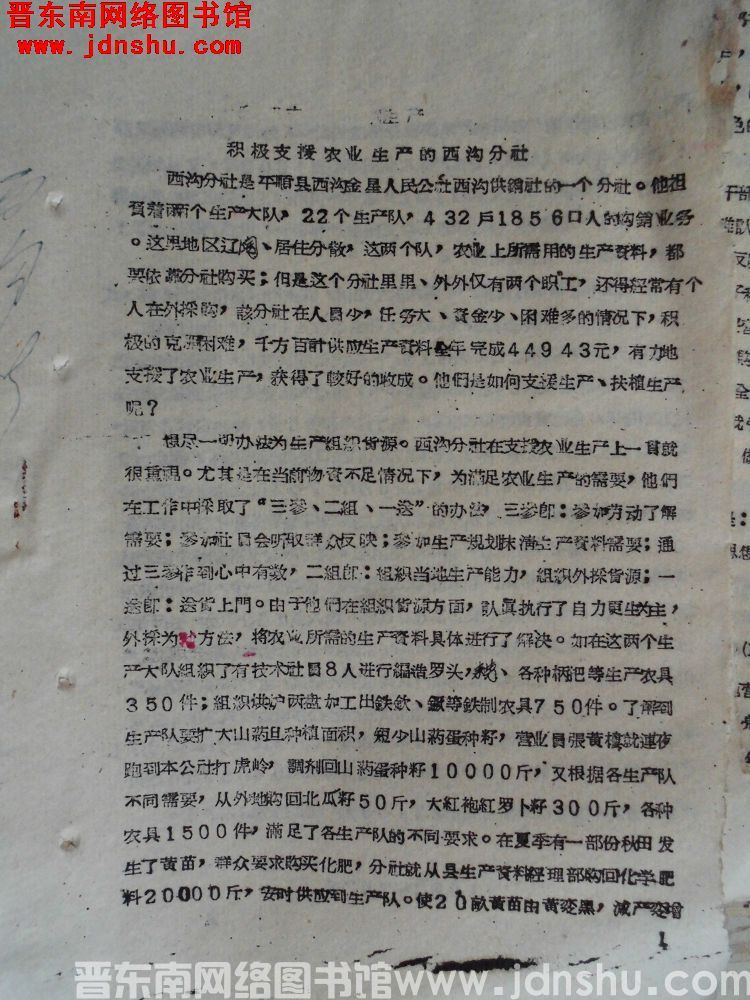 晋东南网络图书馆
www.jdnshu.com
生产
积极支援农业生产的西沟分社
西沟分社是平顺县西沟金星人民公社西沟供銷社的一个分社。他担
負着两个生产大队，22个生产队，432戶1856口人的购銷业务
。这里地区辽阔、居住分散，这两个队，农业上所需用的生产資料，都
要依靠分社购买；但是这个分社里里、外外仅有两个职工，还得经常有个
人在外採购，該分社在人員少，任务大、資金少、困难多的情况下，积
极的克服困难，千方百計供应生产資料全年完成44943元，有力地
支援了农业生产，获得了較好的收成。他們是如何支援生产、扶植生产
呢？
一 想尽一切办法为生产組織货源。西沟分社在支援农业生产上一貫就
很重視。尤其是在当前物資不足情况下，为滿足农业生产的需要，他們
在工作中採取了“三参、二組、一送”的办法，三参即：参加劳动了解
需要；参加社員会听取群众反映；参加生产规划摸清生产資料需要；通
过三参作到心中有数，二組即：組織当地生产能力，組織外採货源；一
送即：送货上門。由于他们在組織货源方面，認眞执行了自力更生为主，
外採为 方法，将农业所需的生产資料具体进行了解决。如在这两个生
产大队組織了有技术社員8人进行編造罗头， 、各种柄把等生产农具
350件；組織烘炉两盘加工出鉄欽、鐝等鉄制农具750件。了解到
生产队要扩大山葯旦种植面积，短少山葯蛋种籽，营业員張黄樓就連夜
跑到本公社打虎岭，調剂回山葯蛋种籽10000斤，又根据各生产队
不同需要，从外地购回北瓜籽50斤，大紅袍紅罗卜籽300斤，各种
农具1500件，滿足了各生产队的不同要求。在夏季有一部份秋田发
生了黄苗，群众要求购买化肥，分社就从县生产資料经理部购回化学肥
料20000斤，安时供应到生产队。使20畝黄苗由黄变黑，减产变增
1
晋东南网络图书馆 www.jdnshu.com